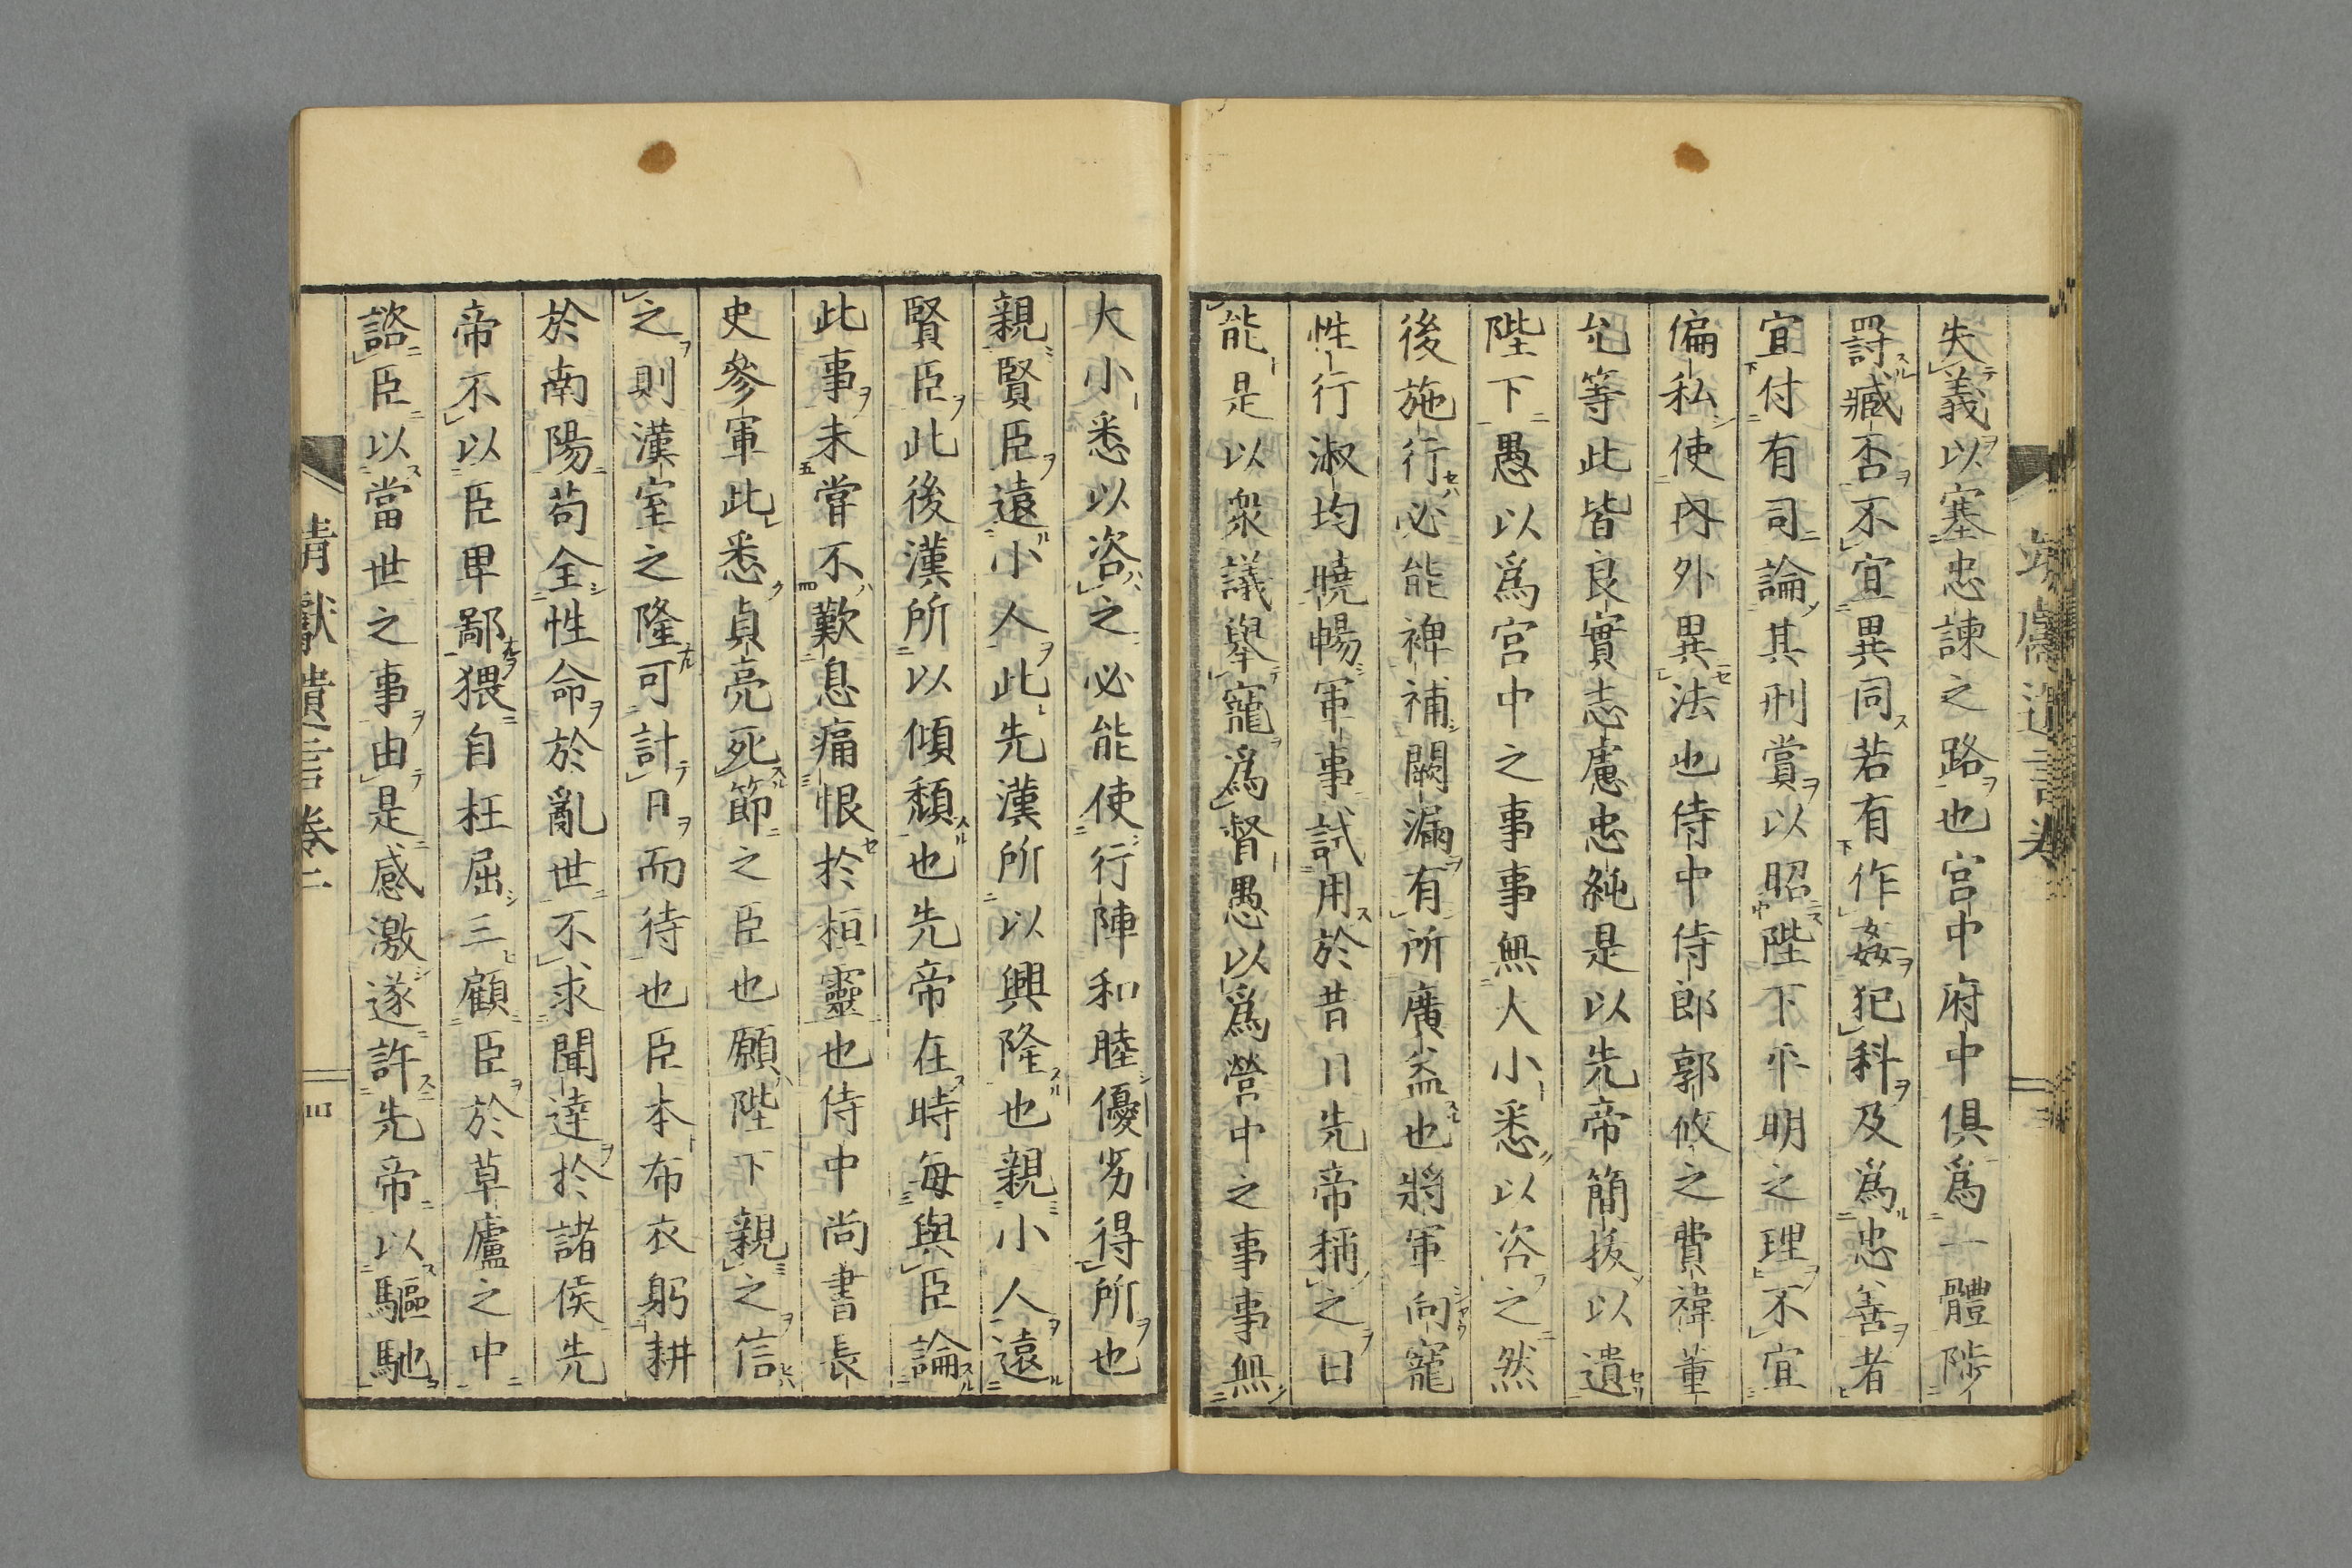 失義以塞忠諫之路也宮中府中俱爲一體陟
罸臧否不宜異同若有作姦犯科及爲忠善者
宜付有司論其刑賞以昭陛下平明之理不宜
偏私使內外異法也侍中侍郎郭攸之費禕董
允等此皆良實志慮忠純是以先帝簡拔以遺
陛下愚以爲宮中之事事無大小悉以咨之然
後施行必能裨補闕漏有所廣益也將軍向寵
性行淑均曉暢軍事試用於昔日先帝稱之曰
能是以衆議擧寵爲督愚以爲營中之事事無
大小悉以咨之必能使行陣和睦優劣得所也
親賢臣遠小人此先漢所以興隆也親小人遠
賢臣此後漢所以傾頽也先帝在時每與臣論
此事未嘗不歎息痛恨於桓靈也侍中尚書長
史參軍此悉貞亮死節之臣也願陛下親之信
之則漢室之隆可計日而待也臣本布衣躬耕
於南陽苟全性命於亂世不求聞達於諸侯先
帝不以臣卑鄙猥自枉屈三顧臣於草廬之中
諮臣以當世之事由是感激遂許先帝以驅馳
靖獻遺言卷一
四